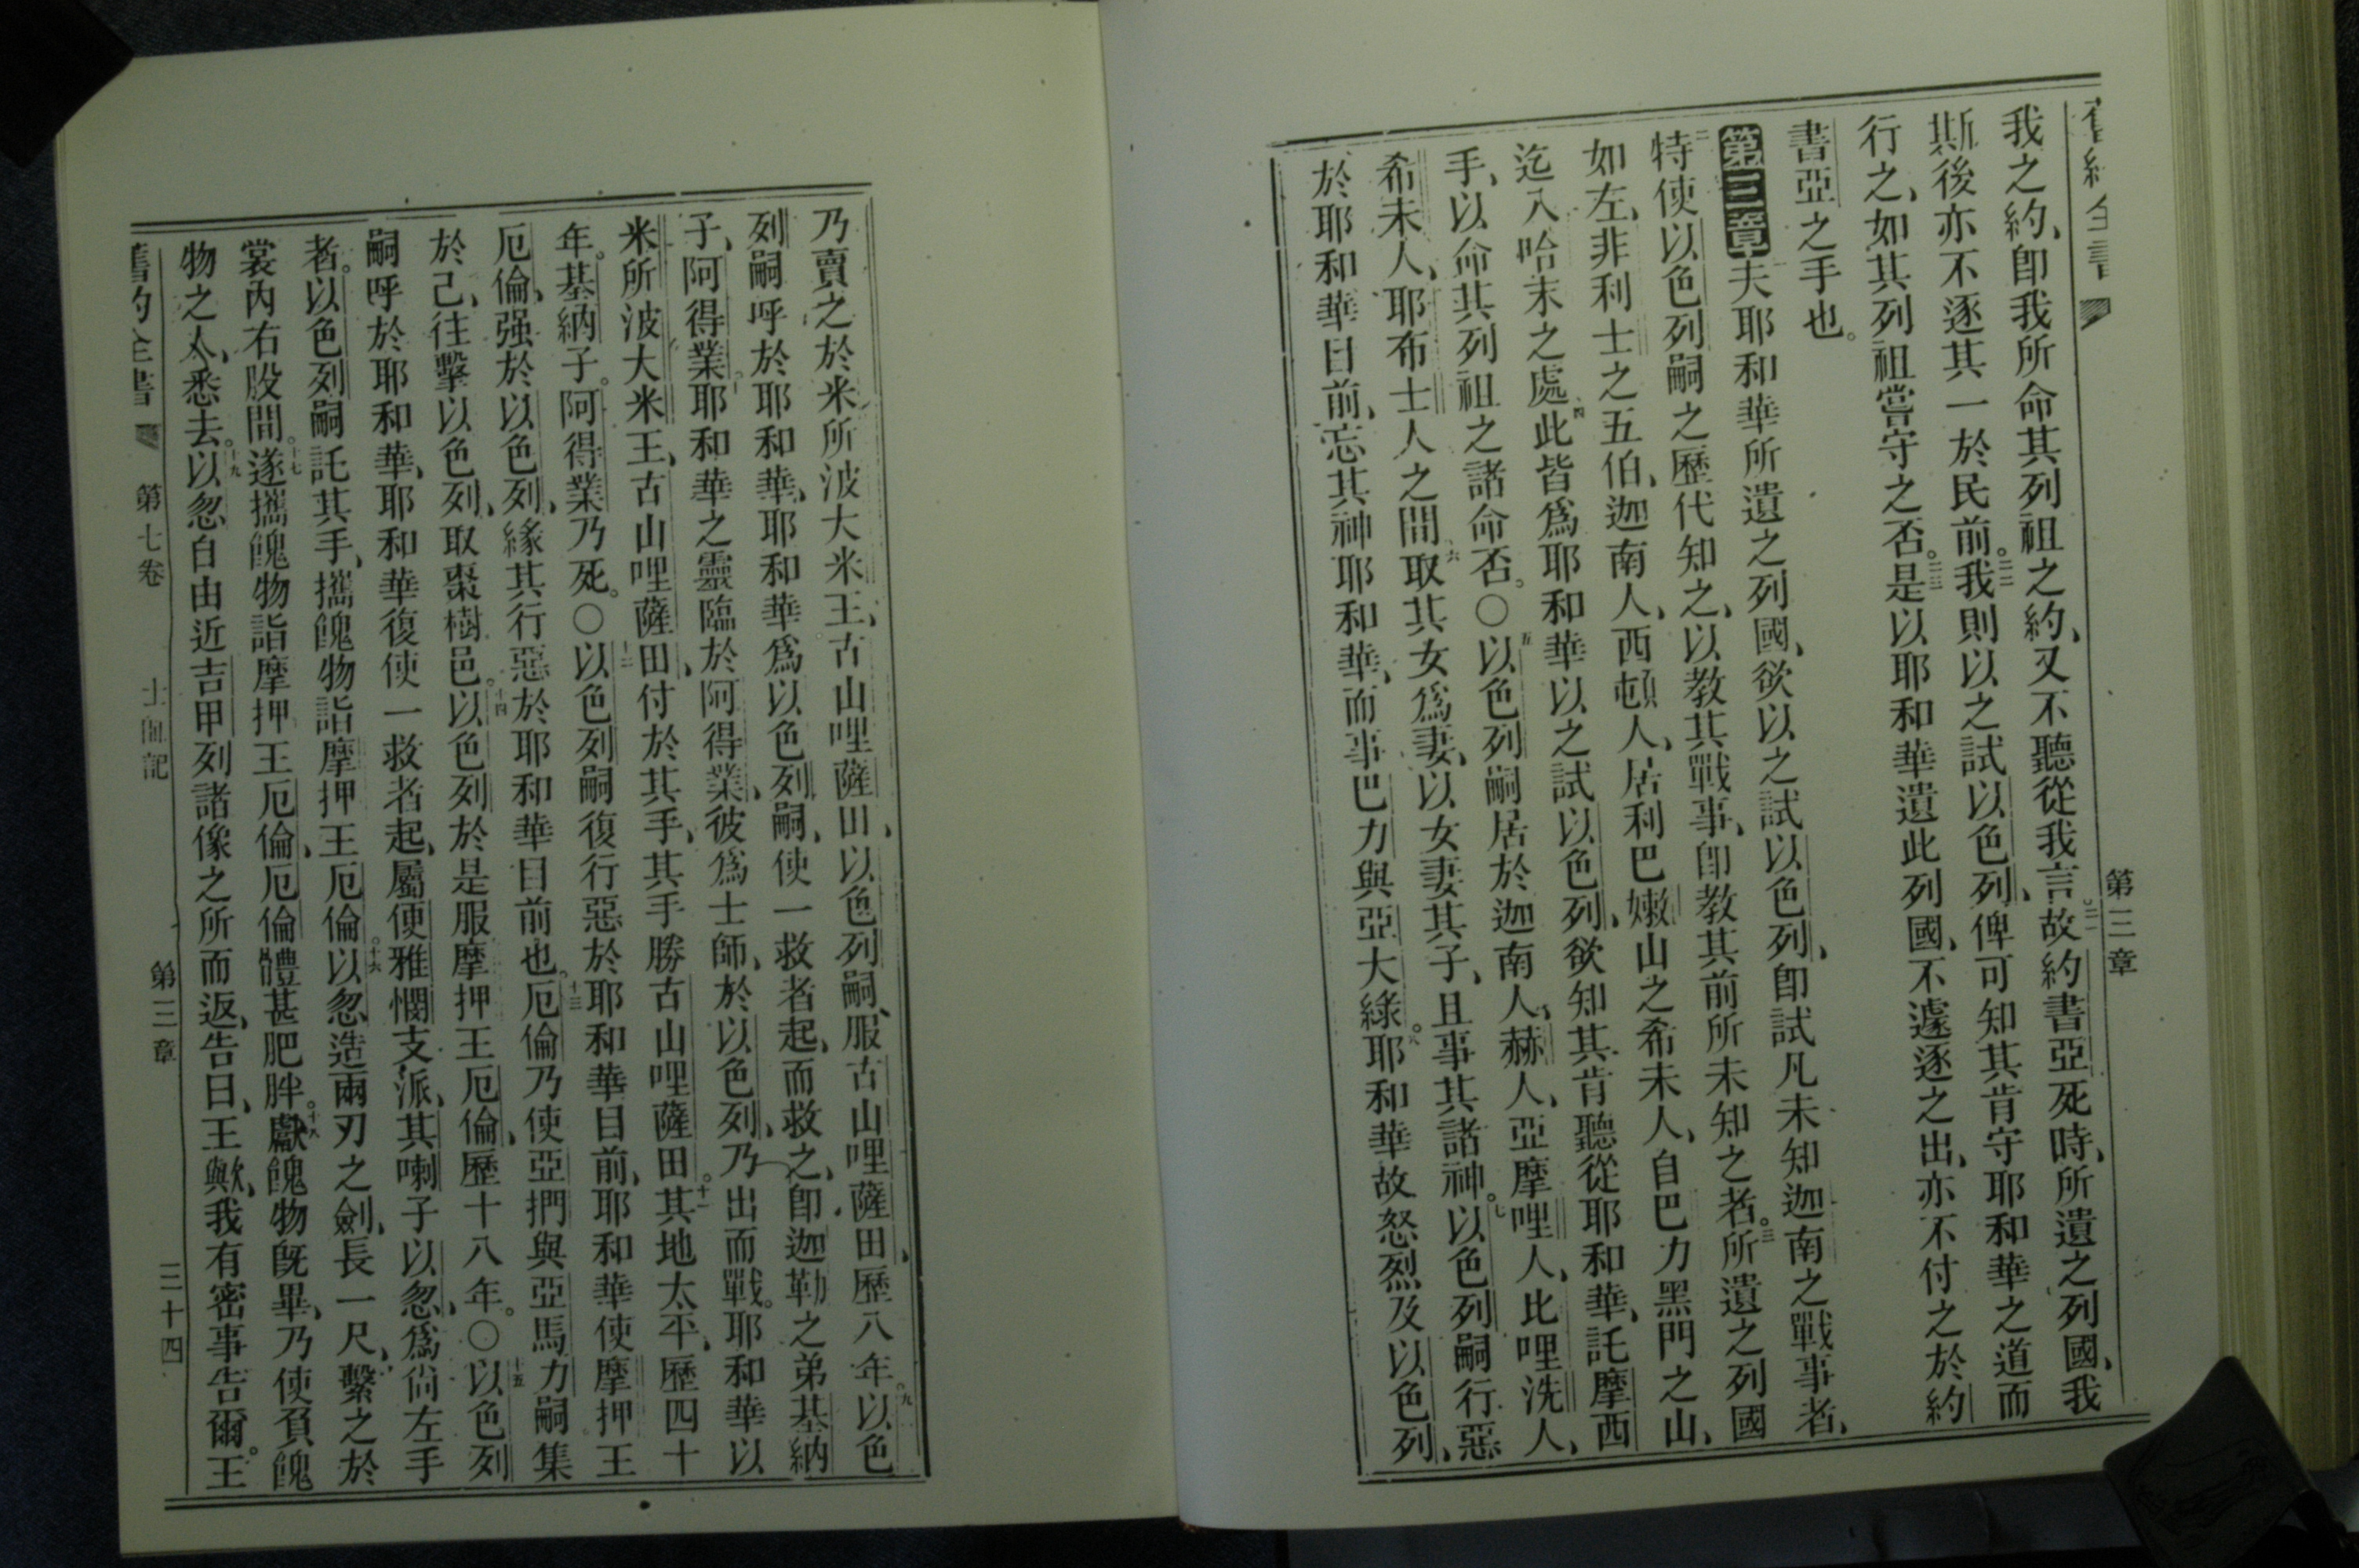 舊約全書 第三章
我之約、卽我所命其列祖之約、又不聽從我言。二一故約書亞死時、所遺之列國、我
斯後亦不逐其一於民前。二二我則以之試以色列、俾可知其肯守耶和華之道而
行之、如其列祖嘗守之否。二三是以耶和華遺此列國、不遽逐之出、亦不付之於約
書亞之手也。
第三章 夫耶和華所遺之列國、欲以之試以色列、卽試凡未知迦南之戰事者、
二特使以色列嗣之歷代知之、以教其戰事、卽教其前所未知之者。三所遺之列國
如左、非利士之五伯、迦南人、西頓人、居利巴嫩山之希未人、自巴力黑門之山、
迄入哈末之處。四此皆爲耶和華以之試以色列、欲知其肯聽從耶和華、託摩西
手、以命其列祖之諸命否。○五以色列嗣居於迦南人、赫人、亞摩哩人、比哩洗人、
希未人、耶布士人之間、六取其女爲妻、以女妻其子、且事其諸神。七以色列嗣行惡
於耶和華目前、忘其神耶和華、而事巴力與亞大綠。八耶和華故怒烈及以色列、
乃賣之於米所波大米王、古山哩薩田、以色列嗣、服古山哩薩田、歷八年。九以色
列嗣呼於耶和華、耶和華爲以色列嗣、使一救者起、而救之、卽迦勒之弟基納
子、阿得業。十耶和華之靈臨於阿得業、彼爲士師、於以色列、乃出而戰。耶和華以
米所波大米王、古山哩薩田、付於其手、其手勝古山哩薩田。十一其地太平、歷四十
年。基納子。阿得業乃死。○十二以色列嗣復行惡於耶和華目前、耶和華使摩押王
厄倫、强於以色列、緣其行惡於耶和華目前也。十三厄倫乃使亞捫與亞馬力嗣集
於己、往擊以色列、取棗樹邑。十四以色列於是服摩押王厄倫、歷十八年。○十五以色列
嗣呼於耶和華、耶和華復使一救者起、屬便雅憫支派、其喇子以忽、爲尙左手
者。以色列嗣託其手、攜餽物詣摩押王厄倫。十六以忽造兩刃之劍、長一尺、繫之於
裳內右股間。十七遂攜餽物詣摩押王厄倫、厄倫體甚肥胖。十八獻餽物旣畢、乃使負餽
物之人、悉去。十九以忽自由近吉甲列諸像之所而返、告曰、王歟、我有密事告爾。王
舊約全書 第七卷 士師記 第三章 三十四